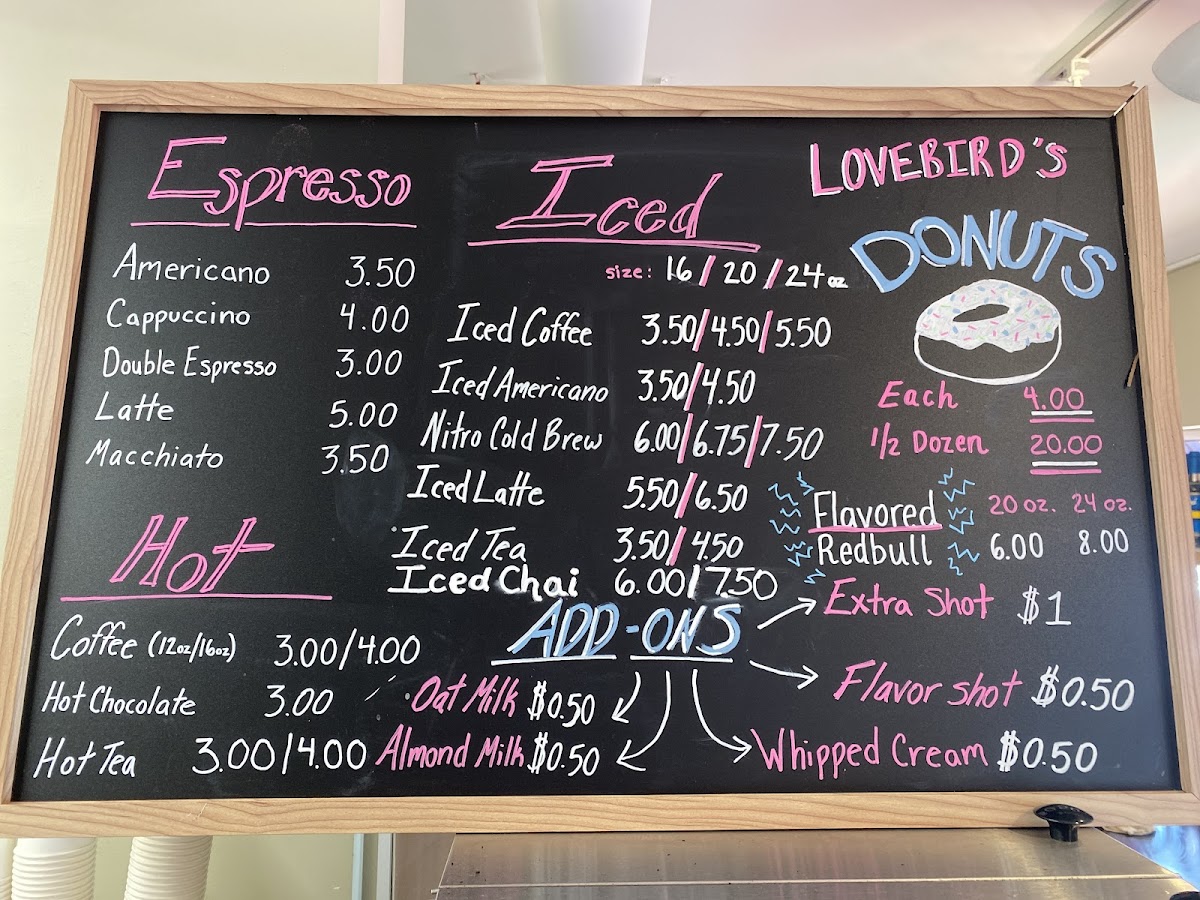 Espresso
Americano 3.50
Cappuccino 4.00
Double Espresso 3.00
Latte 5.00
Macchiato 3.50
Hot
Coffee (12oz/16oz) 3.00/4.00
Hot Chocolate 3.00
Hot Tea 3.00/4.00
Iced
size: 16/20/24oz
Iced Coffee 3.50/4.50/5.50
Iced Americano 3.50/4.50
Nitro Cold Brew 6.00/6.75/7.50
Iced Latte 5.50/6.50
Iced Tea 3.50/4.50
Iced Chai 6.00/7.50
LOVEBIRD'S
DONUTS
Each 4.00
1/2 Dozen 20.00
Flavored 20 oz. 24 oz.
Redbull 6.00 8.00
ADD-ONS
Extra Shot $1
Flavor shot $0.50
Oat Milk $0.50
Almond Milk $0.50
Whipped Cream $0.50